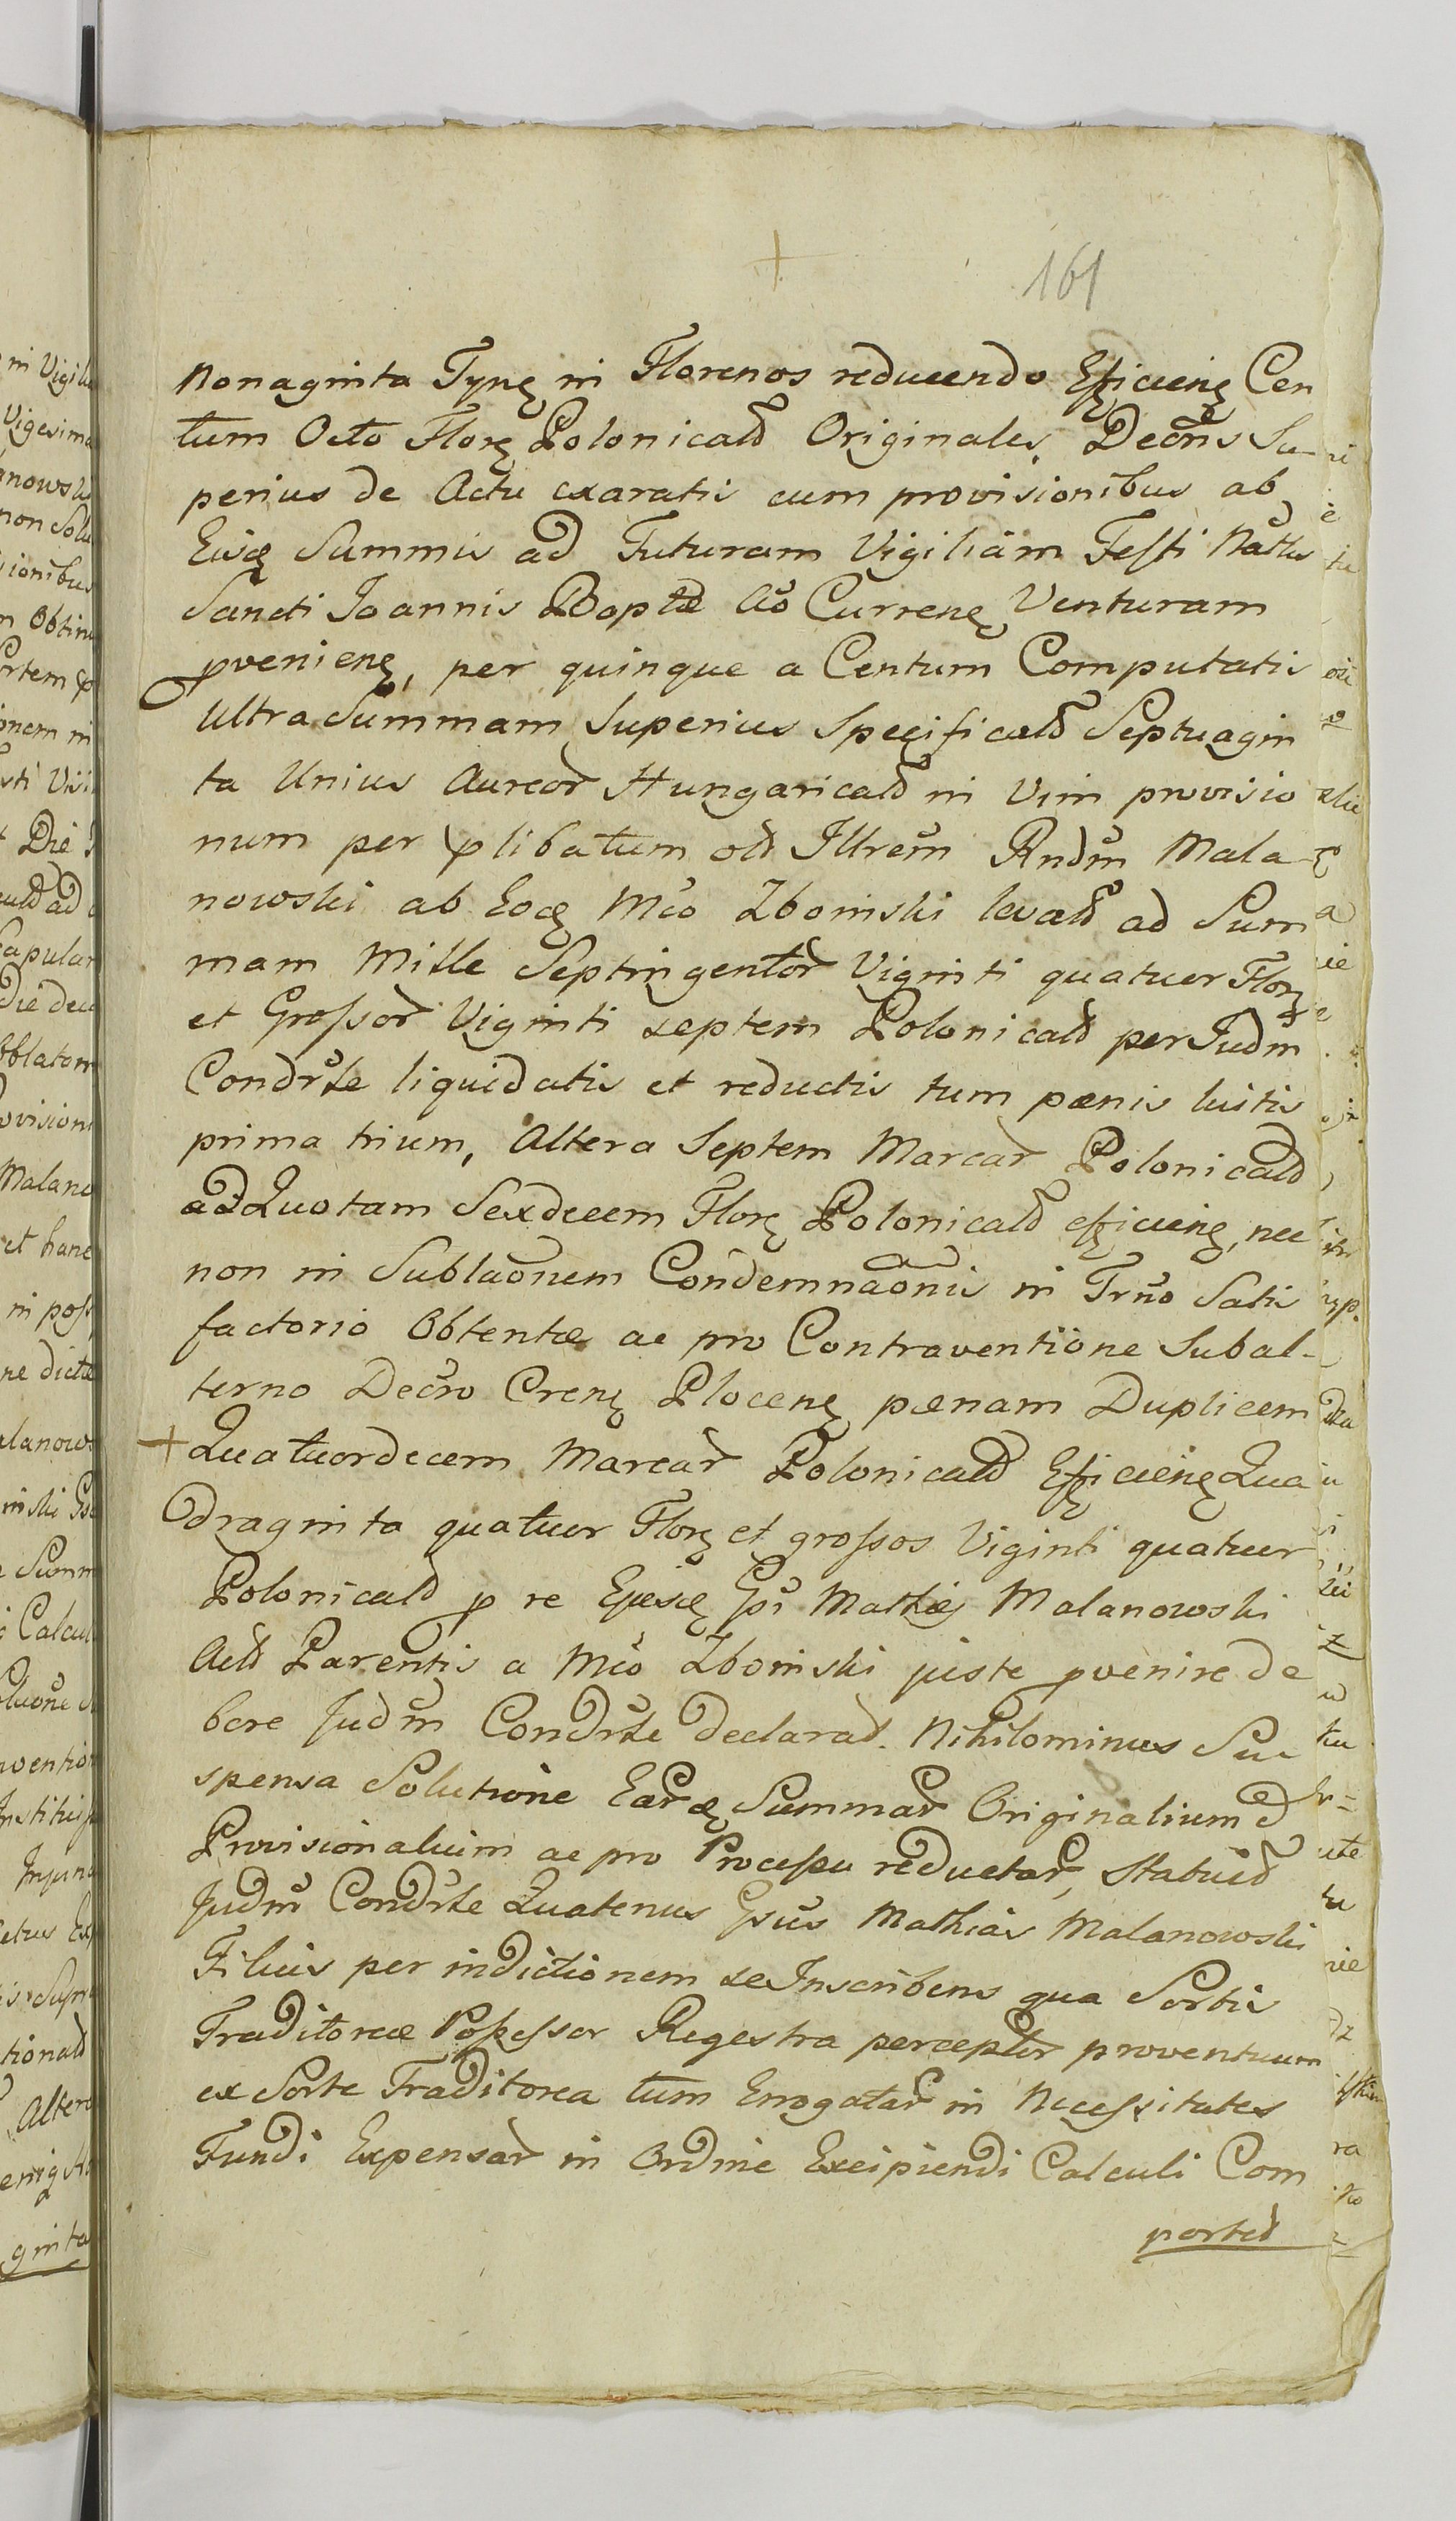 161
nonaginta Tynę in Florenos reducendo Efficienę Cen
tum Octo Florę Polonicald Originales, Decris Su-
perius de Actu exaratis cum provisionibus ab
Eisdę Summis ad Futuram Vigiliam Festi Natlis
Sancti Joannis Baptae Ao Currenę Venturam
pvenienę, per quinque a Centum Computatis
Ultra Summam Superius Specificald Septuagin
ta Unius Aureor Hungaricald in Vim provisio
num per plibatum old Illrem Rndm Mala
nowski ab Eodę Mco Zboinski levald ad Sum
mam Mille Septingentor Viginti quatuor Florę
et Grossor Viginti septem Polonicald per Judm
Condrle liquidatis et reductis tum paenis luitis
prima trium, Altera Septem Marcar Polonicald
ad Quotam Sexdecem Florę Polonicald efficienę, nec
non in Sublaonem Condemnaonis in Trno Satis
factorio Obtentae ac pro Contraventione Subal-
terno Decro Crenę Plocenę paenam Duplicem
+ Quatuordecem Marcar Polonicald Efficienę Qua
draginta quatuor Florę et grossos Viginti quatuor
Polonicald p re Ejusdę Gsi Mathiae Malanowski
Actd Parentis a Mco Zboinski juste pvenire de
bere Judm Condrle declarad. Nihilominus Su
spensa Solutione Eardę Summar Originalium &
Provisionalium ac pro Processu reductar, Statuid
Judm Condrle Quatenus Gsus Mathias Malanowski
Filius per indictionem se Inscribens qua Sortis
Traditoreae Possessor Regestra perceptor proventuum
ex Sorte Traditorea tum Errogatar in Necessitates
Fundi Expensar in Ordine Excipiendi Calculi Com
ported